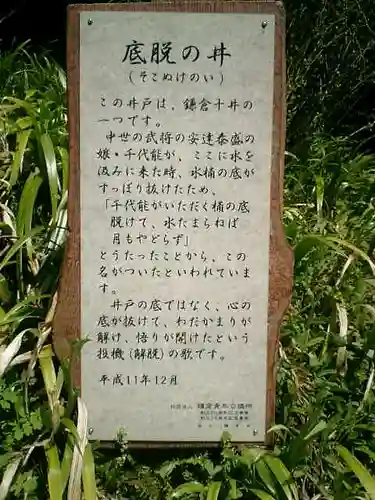 底脱の井
（そこぬけのい）
この井戸は、鎌倉十井の
一つです。
中世の武将の安達泰盛の
娘・千代能が、ここに水を
汲みに来た時、水桶の底が
すっぽり抜けたため、
「千代能がいただく桶の底
脱けて、水たまらねば
月もやどらず」
とうたったことから、この
名がついたといわれていま
す。
井戸の底ではなく、心の
底が抜けて、わだかまりが
解け、悟りが開けたという
投機（解脱）の歌です。
平成11年12月